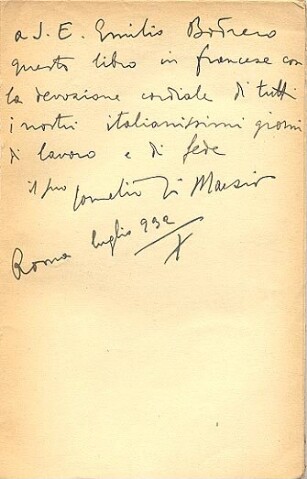 a S. E. Emilio Bodrero
questo libro in francese con
la devozione cordiale di tutti
i nostri italianissimi giorni
di lavoro e di fede
il suo Cornelio Di Marzio
Roma luglio 932
X